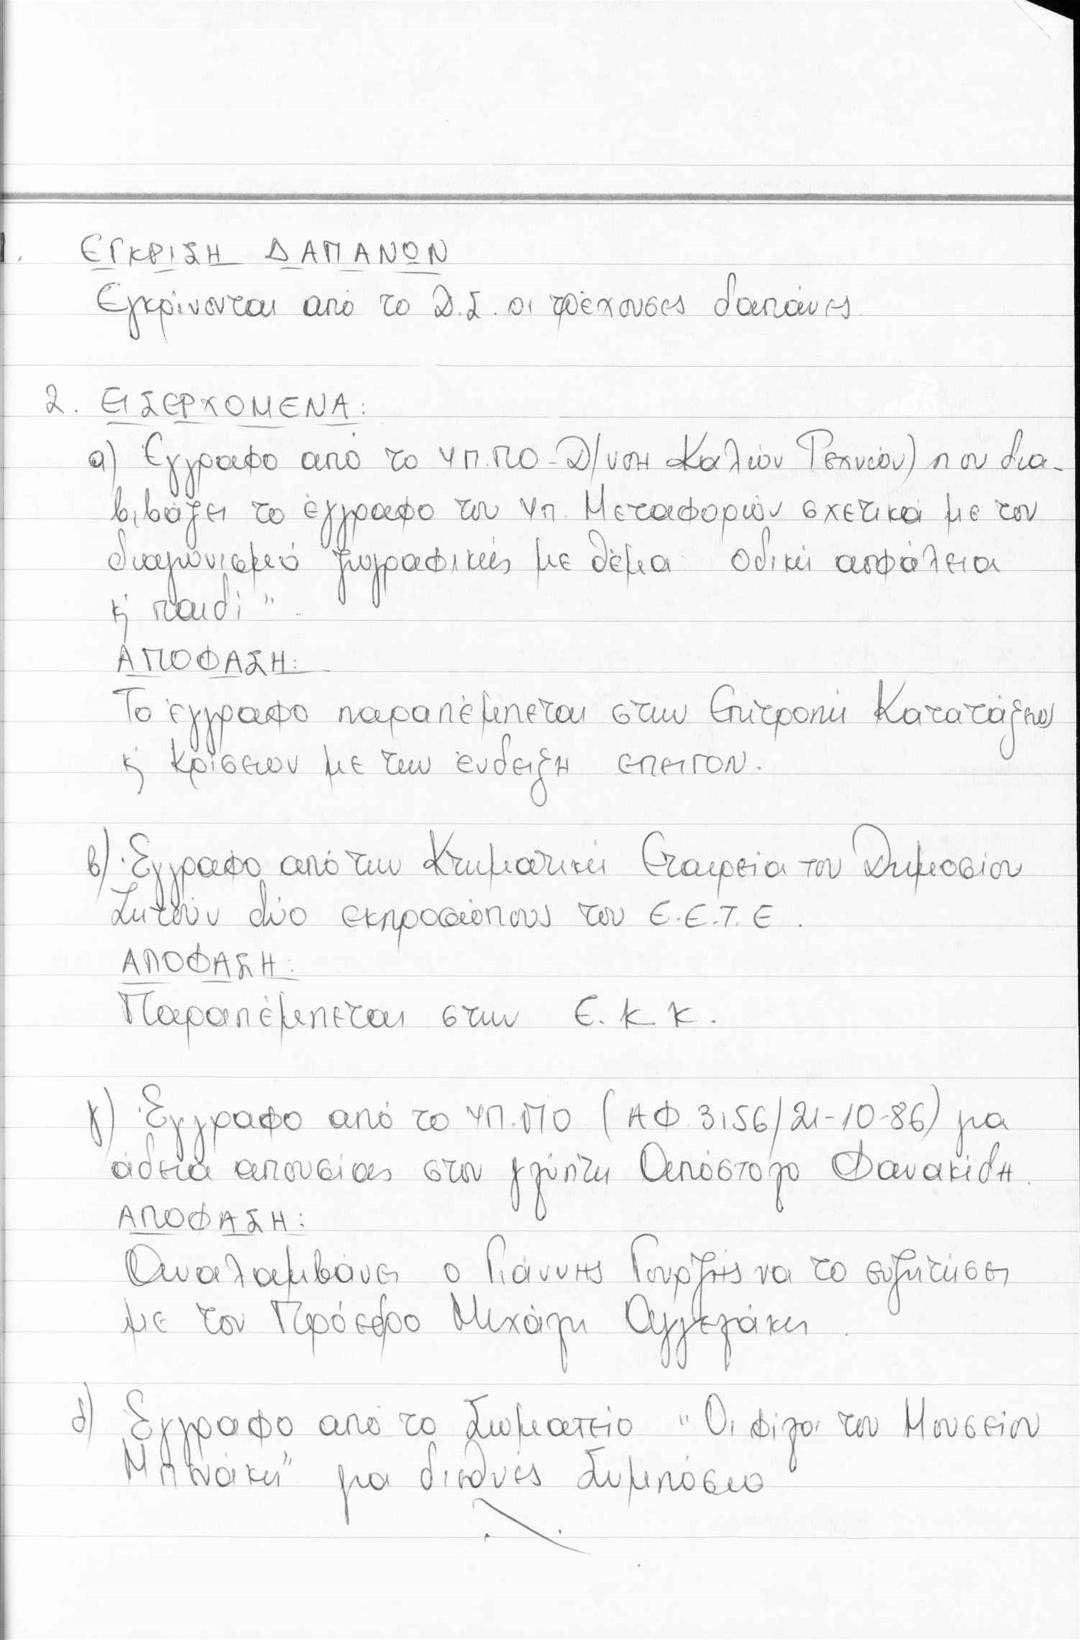 1. ΕΓΚΡΙΣΗ ΔΑΠΑΝΩΝ
Εγκρίνονται από το Δ.Σ. οι τρέχουσες δαπάνες
2. ΕΙΣΕΡΧΟΜΕΝΑ:
α) Έγγραφο από το ΥΠ.ΠΟ-Δ/νση Καλών Τεχνών) που δια-
βιβάζει το έγγραφο του Υπ. Μεταφορών σχετικά με τον
διαγωνισμό ζωγραφικής με θέμα οδική ασφάλεια
κ' παιδί".
ΑΠΟΦΑΣΗ:
Το έγγραφο παραπέμπεται στην Επιτροπή Κατατάξεως
κ' Κρίσεων με την ένδειξη ΕΠΕΙΓΟΝ.
β) Έγγραφο από την Κτηματική Εταιρεία του Δημοσίου
Ζητούν δύο εκπροσώπους του Ε.Ε.Τ.Ε.
ΑΠΟΦΑΣΗ:
Παραπέμπεται στην Ε.Κ.Κ.
γ) Έγγραφο από το ΥΠ.ΠΟ (ΑΦ 3156/21-10-86) για
άδεια απουσίας στον γλύπτη Απόστολο Φανακίδη.
ΑΠΟΦΑΣΗ:
Αναλαμβάνει ο Γιάννης Γουρζής να το συζητήσει
με τον Πρόεδρο Μιχάλη Αγγελάκη.
δ) Έγγραφο από το Σωματείο "Οι φίλοι του Μουσείου
Μπενάκη" για διεθνές Συμπόσιο